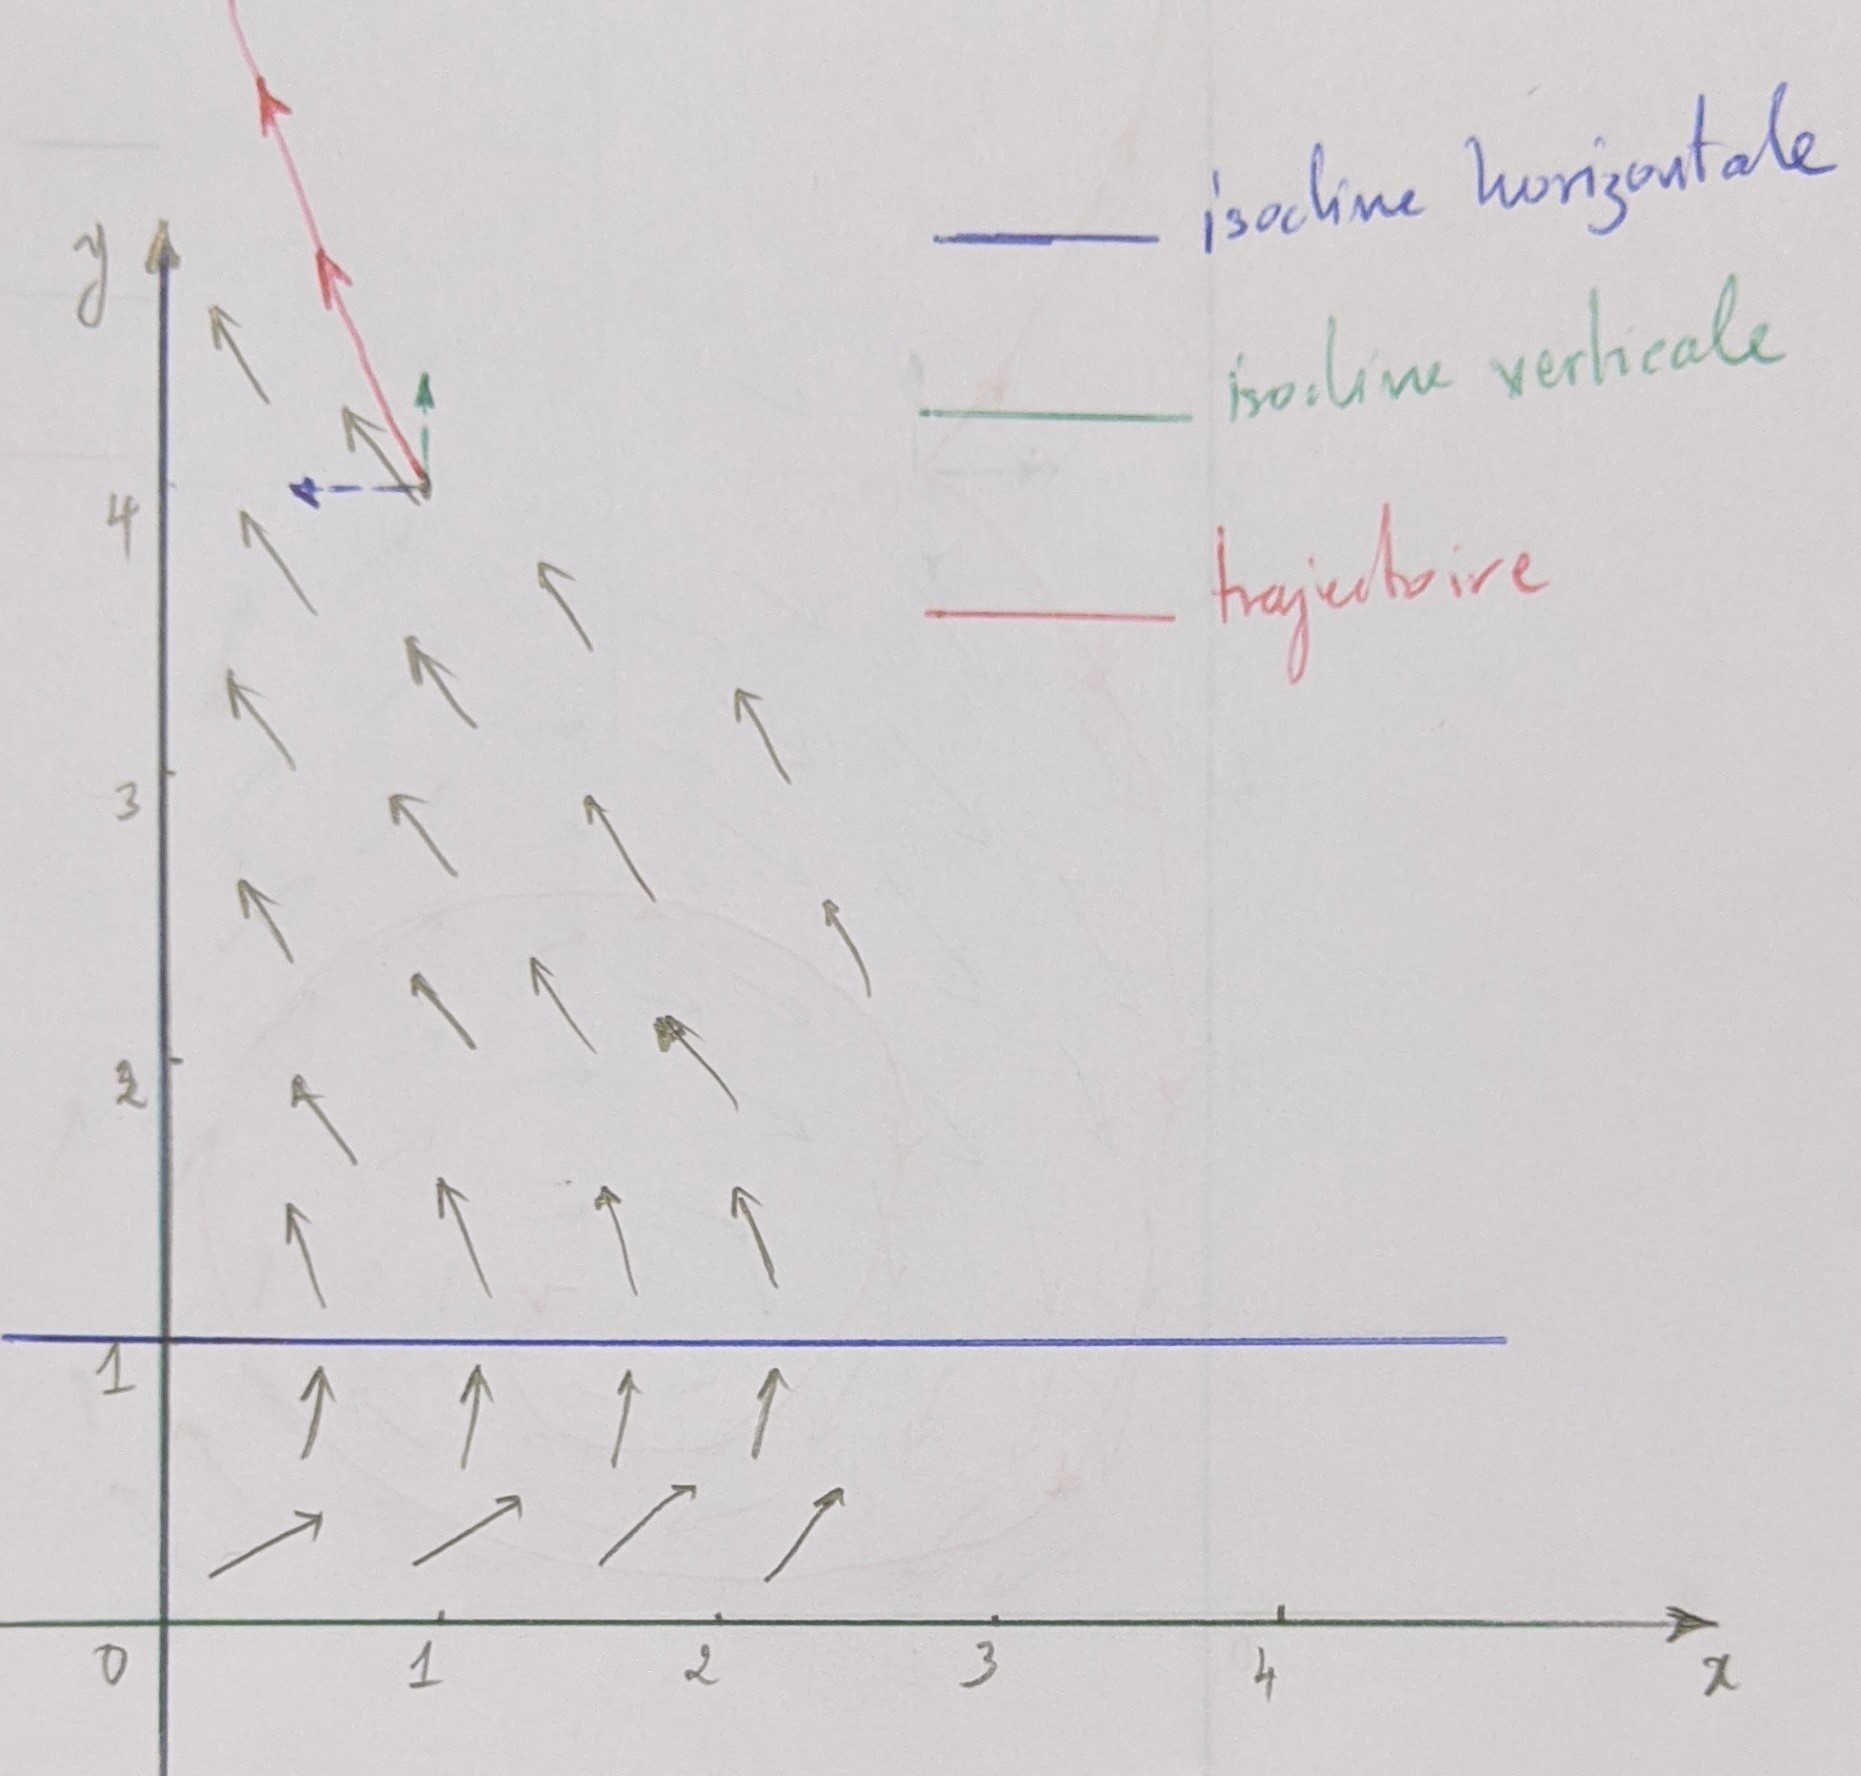 isocline horizontale
y
isocline verticale
4
trajectoire
3
2
1
0 1 2 3 4 x